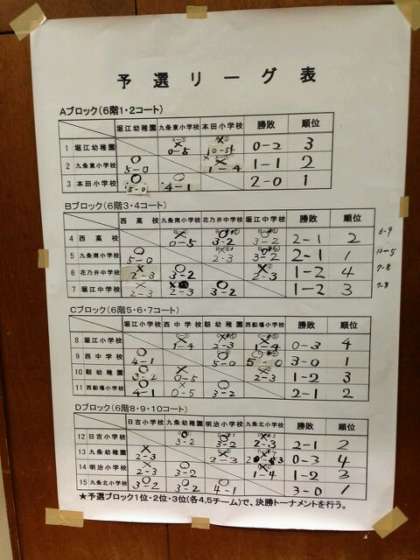 予選リーグ表
Aブロック(6階1・2コート)
堀江幼稚園 九条東小学校 本田小学校 勝敗 順位
1 堀江幼稚園 × 0-5 × 0-5 0-2 3
2 九条東小学校 ○ 5-0 × 1-4 1-1 2
3 本田小学校 ○ 5-0 ○ 4-1 2-0 1
Bブロック(6階3・4コート)
西高校 九条南小学校 花乃井中学校 堀江中学校 勝敗 順位
4 西高校 × 0-5 ○ 3-2 ○ 3-2 2-1 2 6-9
5 九条南小学校 ○ 5-0 × 2-3 ○ 3-2 2-1 1
6 花乃井中学校 × 2-3 ○ 3-2 × 2-3 1-2 4 7-8
7 堀江中学校 × 2-3 × 2-3 ○ 3-2 1-2 3 7-8
Cブロック(6階5・6・7コート)
堀江小学校 西中学校 靭幼稚園 西船場小学校 勝敗 順位
8 堀江小学校 × 1-4 × 2-3 × 1-4 0-3 4
9 西中学校 ○ 4-1 ○ 5-0 ○ 5-0 3-0 1
10 靭幼稚園 ○ 3-2 × 0-5 × 2-3 1-2 3
11 西船場小学校 ○ 4-1 × 0-5 ○ 3-2 2-1 2
Dブロック(6階8・9・10コート)
日吉小学校 九条幼稚園 明治小学校 九条北小学校 勝敗 順位
12 日吉小学校 ○ 3-2 ○ 3-2 × 2-3 2-1 2
13 九条幼稚園 × 2-3 × 2-3 × 2-3 0-3 4
14 明治小学校 × 2-3 ○ 3-2 × 1-4 1-2 3
15 九条北小学校 ○ 3-2 ○ 3-2 ○ 4-1 3-0 1
★予選ブロック1位・2位・3位(各4,5チーム)で、決勝トーナメントを行う。